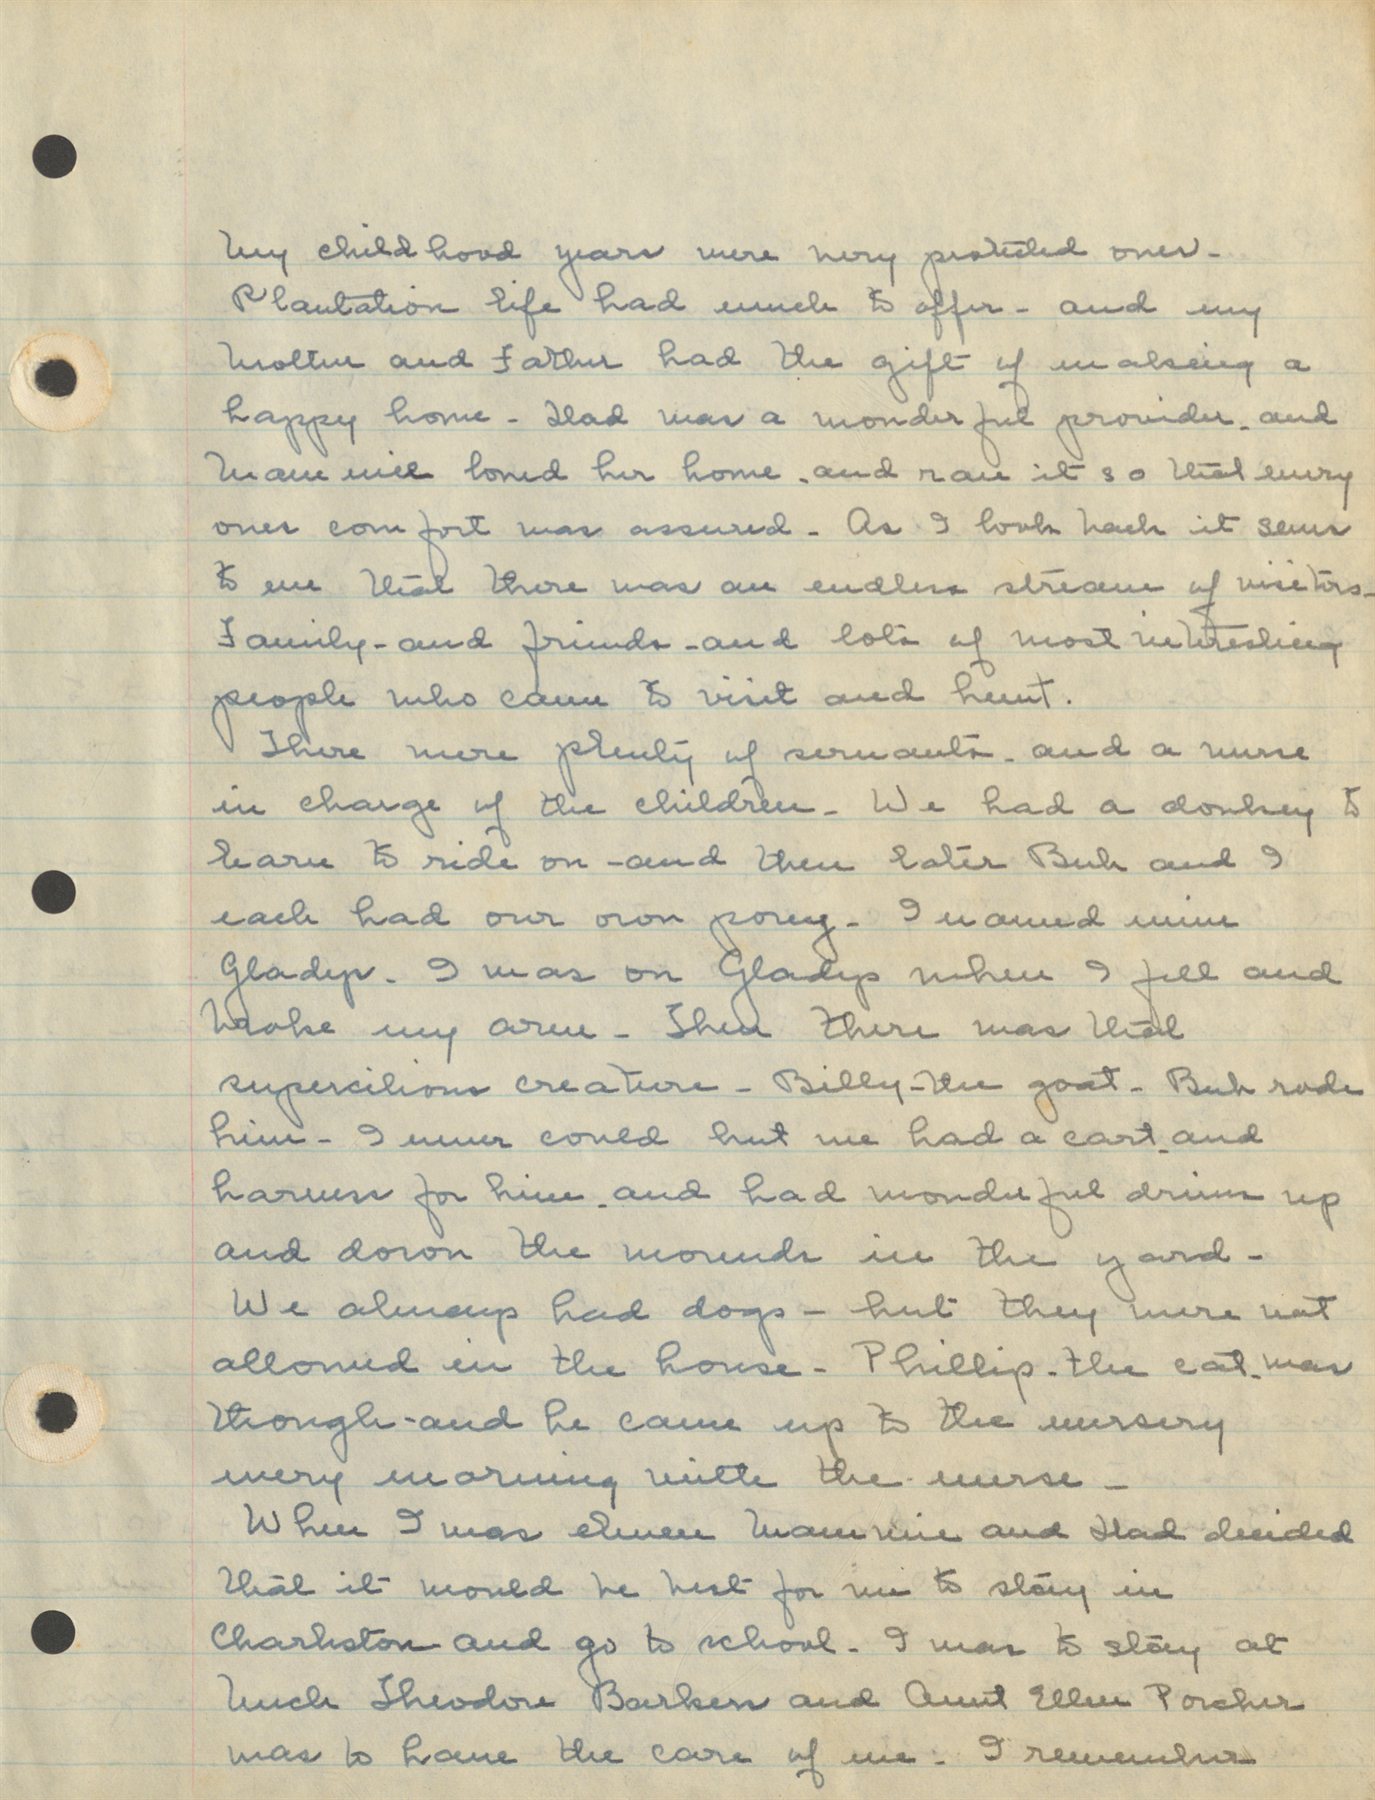 My childhood years were very protected ones -
Plantation life had much to offer - and my
Mother and Father had the gift of making a
happy home - Dad was a wonderful provider - and
Mammie loved her home - and ran it so that every
ones comfort was assured - As I look back it seems
to me that there was an endless stream of visitors -
Family - and friends - and lots of most interesting
people who came to visit and hunt.
There were plenty of servants - and a nurse
in charge of the children - We had a donkey to
learn to ride on - and then later Bub and I
each had our own pony - I named mine
Gladys - I was on Gladys when I fell and
broke my arm - Then there was that
supercilious creature - Billy - the goat - Bub rode
him - I never could but we had a cart - and
harness for him - and had wonderful drives up
and down the mounds in the yard -
We always had dogs - but they were not
allowed in the house - Phillip - the cat - was
though - and he came up to the nursery
every morning with the nurse -
When I was eleven Mammie and Dad decided
that it would be best for me to stay in
Charleston and go to school - I was to stay at
Uncle Theodore Barkers and Aunt Ellen Porcher
was to have the care of me - I remember